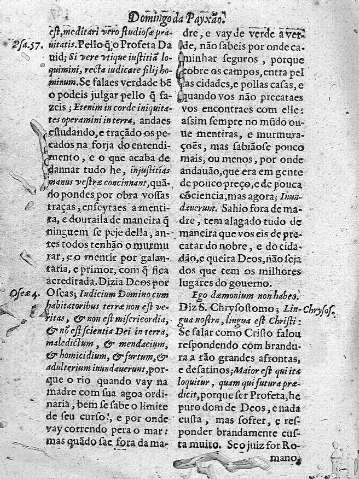 Domingo da Payxão.
est, meditari vero studiosæ pra-
Psa. 57. uitatis. Pello q̃ o Profeta Da
uid; Si vere vtique iustitiã lo
quimini, recta iudicate filij ho
minum. Se falaes verdade bẽ
o podeis julgar pello q̃ fa-
zeis; Etenim in corde iniquita
tes operamini in terra, andaes
estudando, e traçãdo os pe-
cados na forja do entendi-
mento, e o que acaba de
dannar tudo he, iniustitias
manus vestræ concinnant, quã-
do pondes por obra vossas
traças, enfeytaes a menti-
ra, e douraila de maneira q̃
ninguem se peje della, an-
tes todos tenhão o murmu
rar, e o mentir por galan-
taria, e primor, com q̃ fica
acreditada. Dizia Deos por
Oseæ 4. Oseas; Iudicium Domino cum
habitatoribus terræ non est ve-
ritas, & non est misericordia,
& nõ est scientia Dei in terra,
maledictum, & mendacium,
& homicidium, & furtum, &
adulterium inundauerunt, por-
que o rio quando vay na
madre com sua agoa ordi-
naria, bem se sabe o limite
de seu curso, e por onde
vay correndo pera o mar:
mas quãdo sae fora da ma-
dre, e vay de verde a ver-
de, não sabeis por onde ca-
minhar seguros, porque
cobre os campos, entra pel
las cidades, e pollas casas, e
quando vos não precataes
vos encontraes com elle:
assim sempre no mũdo ou-
ue mentiras, e murmura-
ções, mas sabiãose pouco
mais, ou menos, por onde
andauão, que era em gente
de pouco preço, e de pouca
cõsciencia, mas agora, Inun-
dauerunt. Sahio fora de ma-
dre, tem alagado tudo de
maneira que vos eis de pre-
catar do nobre, e do cida-
dão, e queira Deos, não seja
dos que tem os milhores
lugares do governo.
Ego dæmonium non habeo.
Diz S. Chrysostomo; Lin- Chrysos.
gua nostra, lingua est Christi:
Se falar como Cristo falou
respondendo com brandu-
ra a tão grandes afrontas,
e desatinos; Maior est qui ita
loquitur, quam qui futura præ-
dicit, porque ser Profeta, he
puro dom de Deos, e nada
custa, mas sofrer, e res-
ponder brandamente cus-
ta muito. Se o juiz for Ro-
mano,